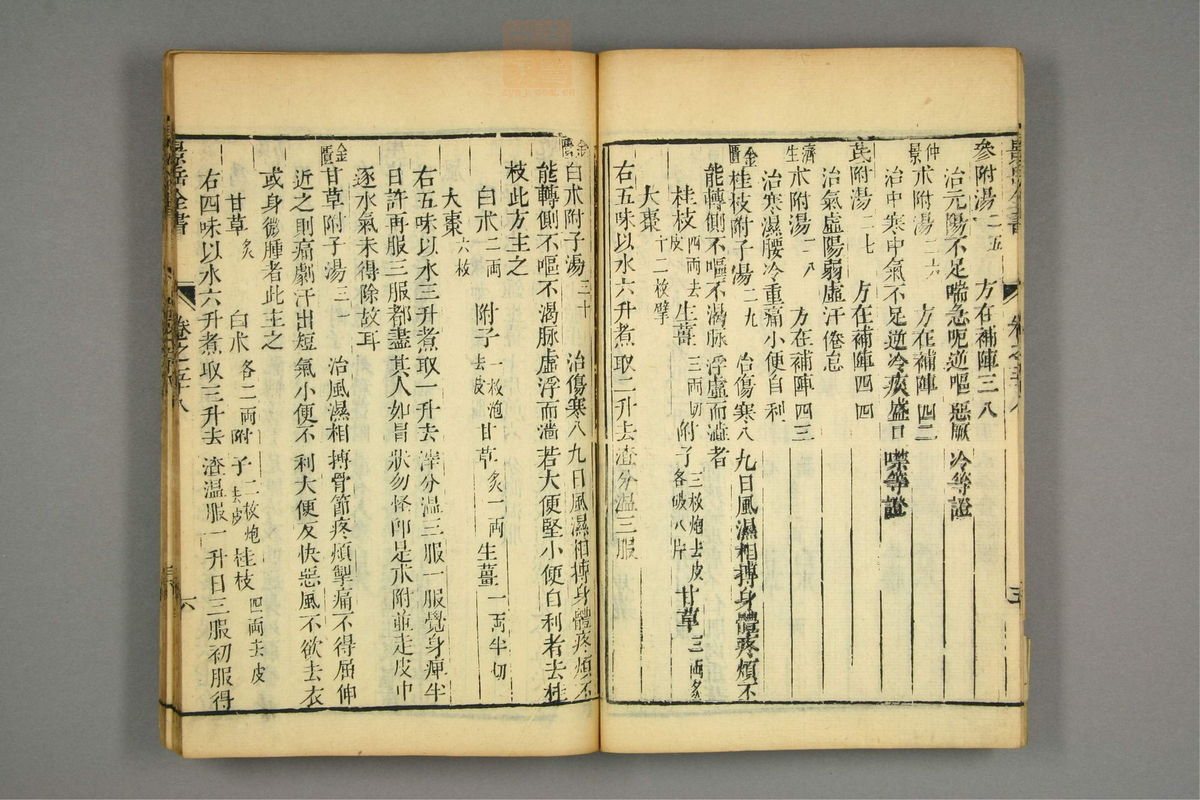 參附湯二五 方在補陣三八
治元陽不足喘急呃逆嘔惡厥冷等證
仲景 朮附湯二六 方在補陣四二
治中寒中氣不足逆冷痰盛口噤等證
芪附湯二七 方在補陣四四
治氣虛陽弱虛汗倦怠
濟生 朮附湯二八 方在補陣四三
治寒濕腰冷重痛小便自利
金匱 桂枝附子湯二九 治傷寒八九日風濕相摶身體疼煩不
能轉側不嘔不渴脉浮虛而濇者
桂枝四兩去皮 生薑三兩切 附子三枚炮去皮各破八片 甘草三兩炙
大棗十二枚擘
右五味以水六升煮取二升去渣分温三服
金匱 白朮附子湯三十 治傷寒八九日風濕相摶身體疼煩不
能轉側不嘔不渴脉虛浮而濇若大便堅小便自利者去桂
枝此方主之
白朮二兩 附子一枚炮去皮 甘草炙一兩 生薑一兩半切
大棗六枚
右五味以水三升煮取一升去滓分温三服一服覺身痺半
日許再服三服都盡其人如冒狀勿怪卽是朮附並走皮中
逐水氣未得除故耳
金匱 甘草附子湯三一 治風濕相摶骨節疼煩掣痛不得屈伸
近之則痛劇汗出短氣小便不利大便反快惡風不欲去衣
或身微腫者此主之
甘草炙 白朮各二兩 附子二枚炮去皮 桂枝四兩去皮
右四味以水六升煮取三升去渣温服一升日三服初服得
景岳全書 卷之五十八 六